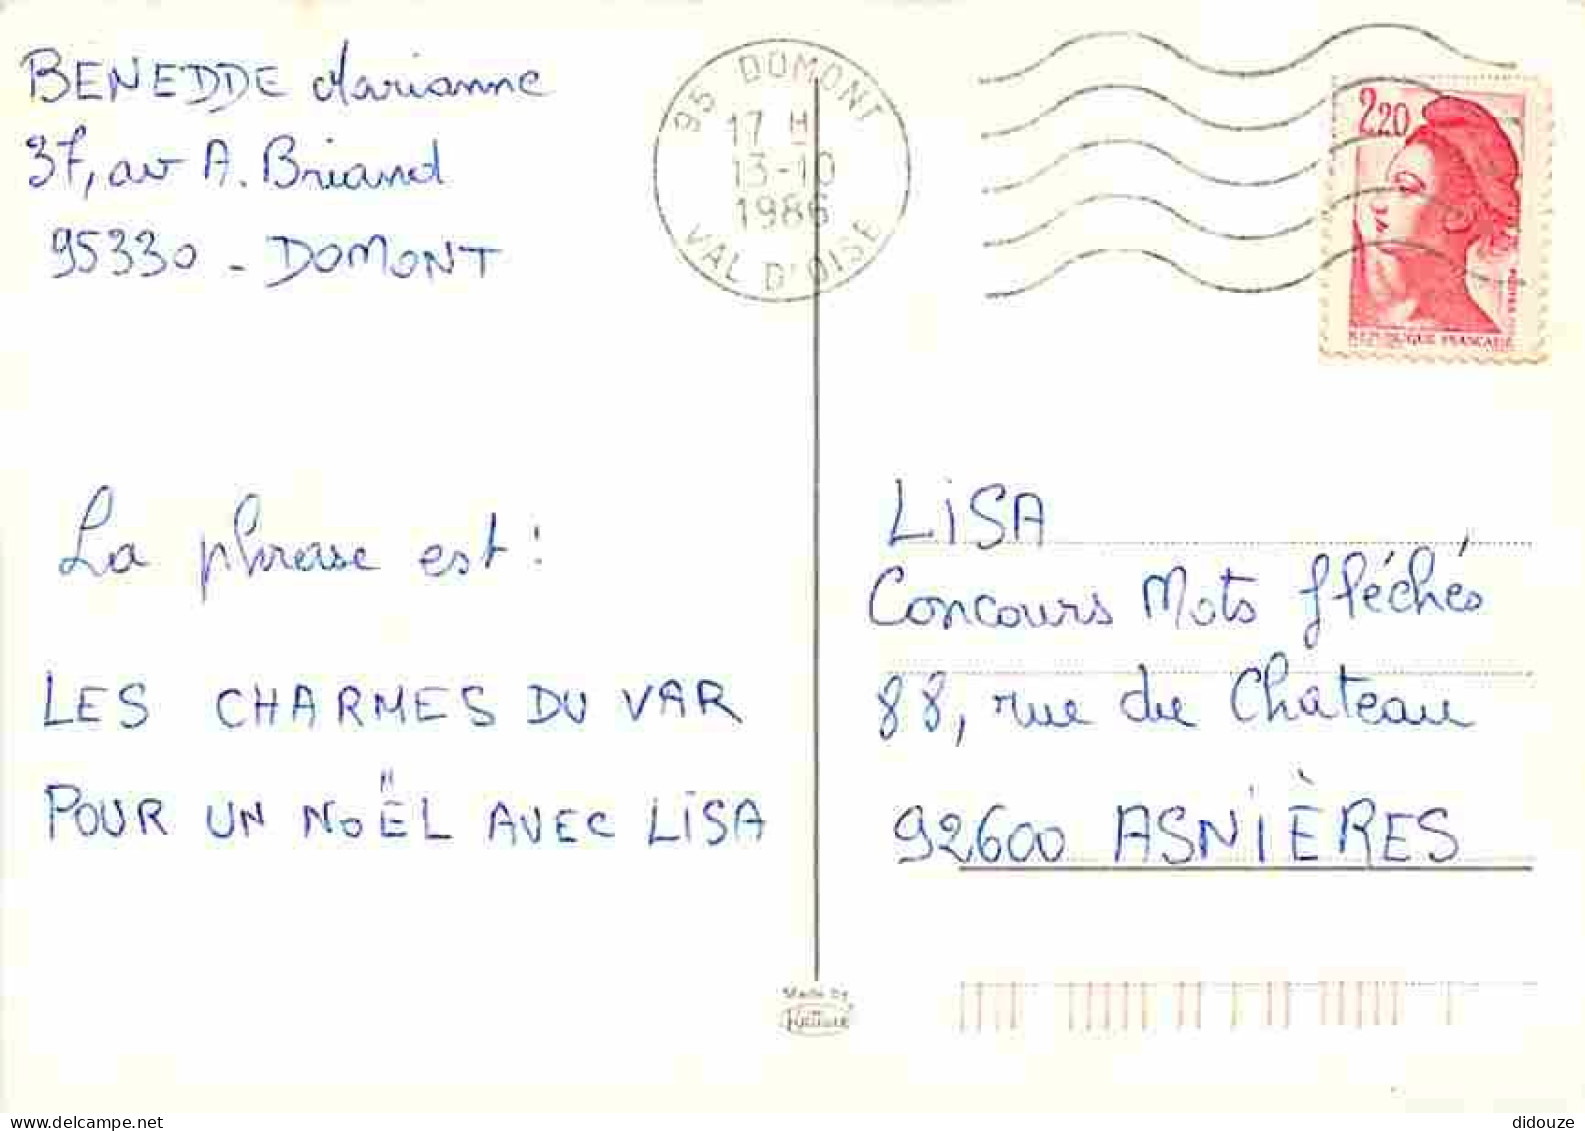 BENEDDE Marianne
37, av A. Briand
95330 - DOMONT
95 DOMONT
17 H
13-10
1986
VAL D'OISE
2,20
REPUBLIQUE FRANCAISE
La phrase est :
LES CHARMES DU VAR
POUR UN NOËL AVEC LISA
LISA
Concours Mots fléchés
88, rue du Chateau
92600 ASNIÈRES
Made by
didouze